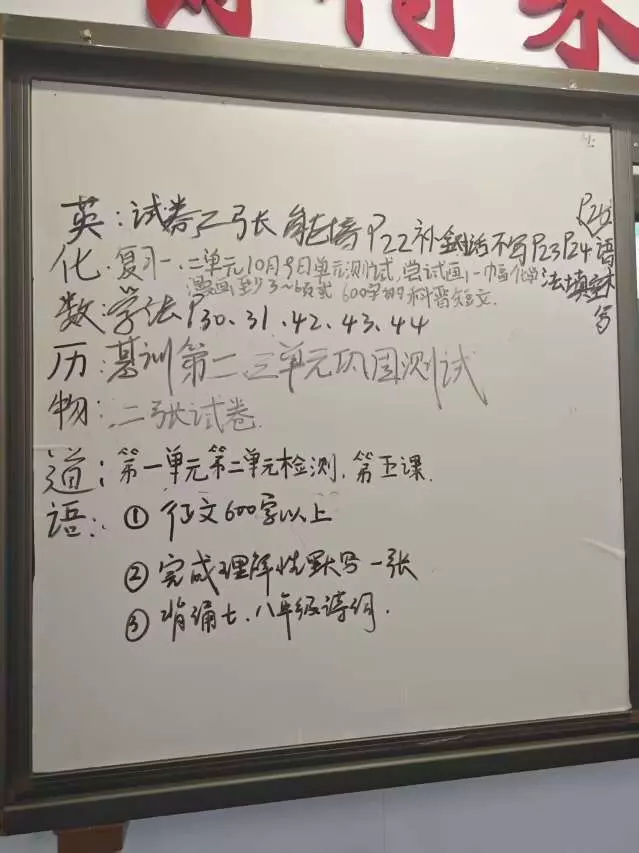 英:试卷2张 能培P22补全对话不写P23 P24语法填空不写
P25
化:复习一、二单元10月9日单元测试,尝试画一幅化学
漫画至少3~6页或600字的科普短文.
数:学法P30、31、42、43、44
历:基训第二、三单元巩固测试
物:二张试卷
道:第一单元第二单元检测.第五课.
语:①征文600字以上
②完成理解性默写一张
③背诵七、八年级诗词.